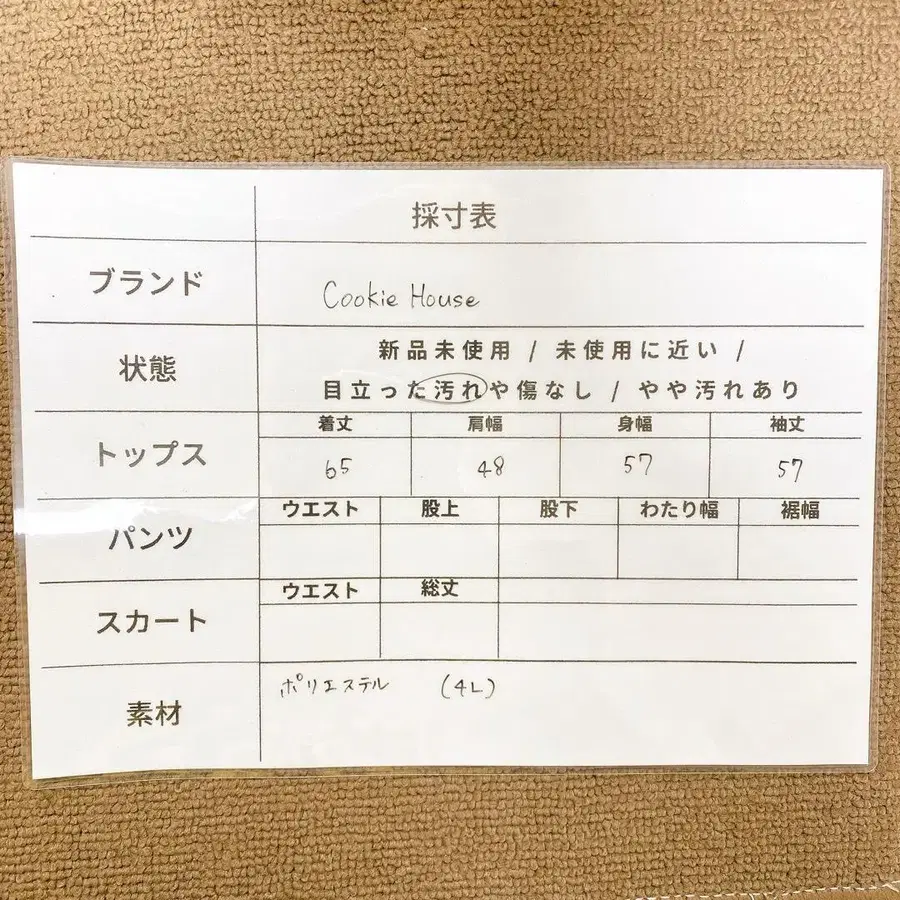 採寸表
ブランド
Cookie House
状態
新品未使用 / 未使用に近い /
目立った汚れや傷なし / やや汚れあり
トップス
着丈 肩幅 身幅 袖丈
65 48 57 57
パンツ
ウエスト 股上 股下 わたり幅 裾幅
スカート
ウエスト 総丈
素材
ポリエステル (4L)